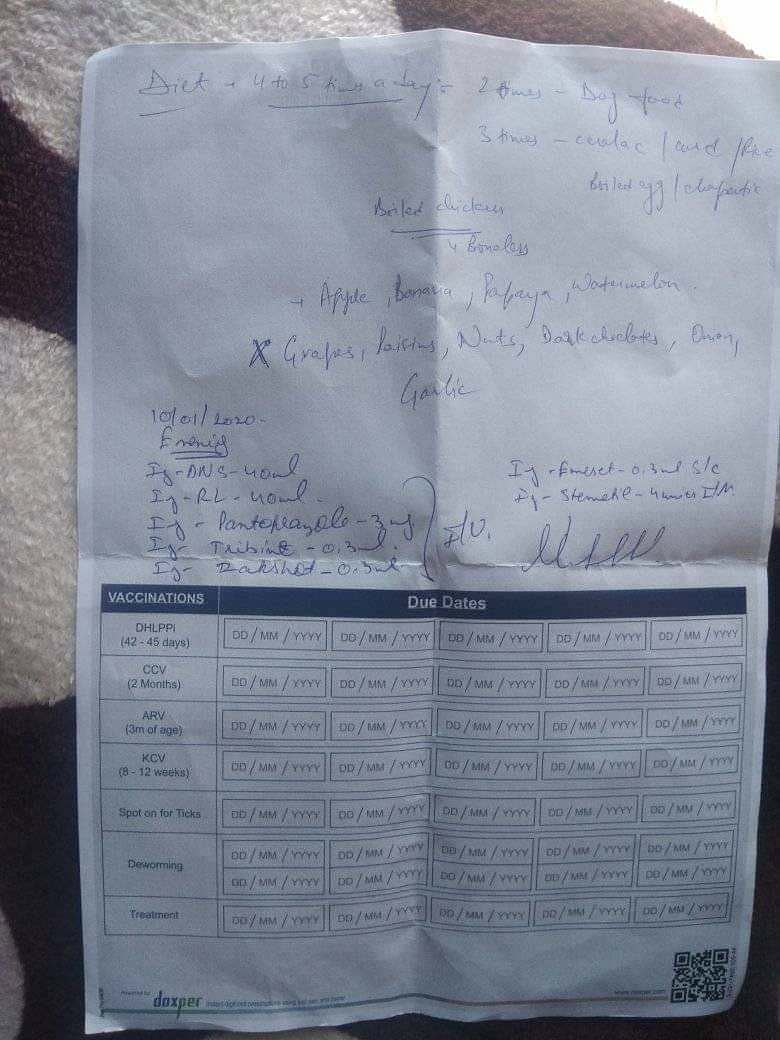 Diet → 4 to 5 times a day :- 2 times - Dog food
3 times - cerelac / curd / Rice
Boiled egg / chapatti
Boiled chicken
↳ Boneless
→ Apple, Banana, Papaya, Watermelon.
X Grapes, Raisins, Nuts, Dark choclates, Onion,
Garlic
10/01/2020.
Evening
Inj - DNS - 40ml
Inj - RL - 40ml.
Inj - Pantoprazole - 3mg
Inj - Tribivet - 0.3ml.
Inj - - 0.3ml
I/V.
Inj - Emeset - 0.3ml S/c
Inj - Stemetil - 4 units I/M
VACCINATIONS Due Dates
DHLPPi
(42 - 45 days)
DD / MM / YYYY DD / MM / YYYY DD / MM / YYYY DD / MM / YYYY DD / MM / YYYY
CCV
(2 Months)
DD / MM / YYYY DD / MM / YYYY DD / MM / YYYY DD / MM / YYYY DD / MM / YYYY
ARV
(3m of age)
DD / MM / YYYY DD / MM / YYYY DD / MM / YYYY DD / MM / YYYY DD / MM / YYYY
KCV
(8 - 12 weeks)
DD / MM / YYYY DD / MM / YYYY DD / MM / YYYY DD / MM / YYYY DD / MM / YYYY
Spot on for Ticks DD / MM / YYYY DD / MM / YYYY DD / MM / YYYY DD / MM / YYYY DD / MM / YYYY
Deworming
DD / MM / YYYY DD / MM / YYYY DD / MM / YYYY DD / MM / YYYY DD / MM / YYYY
DD / MM / YYYY DD / MM / YYYY DD / MM / YYYY DD / MM / YYYY DD / MM / YYYY
Treatment DD / MM / YYYY DD / MM / YYYY DD / MM / YYYY DD / MM / YYYY DD / MM / YYYY
Powered by
doxper Instant digitized prescriptions using just pen and paper
www.doxper.com